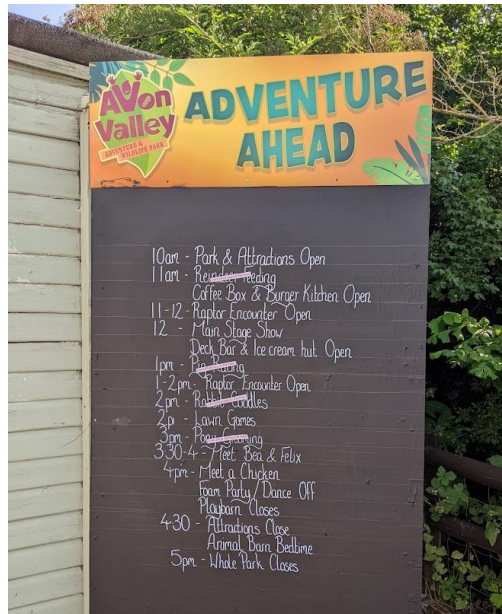 Avon
Valley
ADVENTURE &
WILDLIFE PARK
ADVENTURE
AHEAD
10am - Park & Attractions Open
11am - Reindeer Feeding
Coffee Box & Burger Kitchen Open
11-12 - Raptor Encounter Open
12 - Main Stage Show
Deck Bar & Ice cream hut Open
1pm - Pig Racing
1-2pm - Raptor Encounter Open
2pm - Rabbit Cuddles
2p - Lawn Games
3pm - Pony Grooming
3:30-4 - Meet Bea & Felix
4pm - Meet a Chicken
Foam Party / Dance Off
Playbarn Closes
4:30 - Attractions Close
Animal Barn Bedtime
5pm - Whole Park Closes